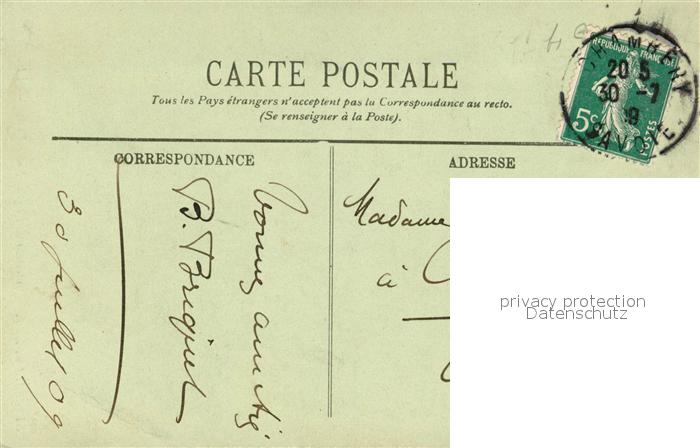 CARTE POSTALE
Tous les Pays étrangers n'acceptent pas la Correspondance au recto.
(Se renseigner à la Poste).
CORRESPONDANCE
ADRESSE
REPUBLIQUE FRANCAISE
5c
POSTES
CHAMBERY
20 5
30 -7
9
SAVOIE
Bonne amitié
B. Briquet
30 juillet 09
Madame
à
privacy protection
Datenschutz